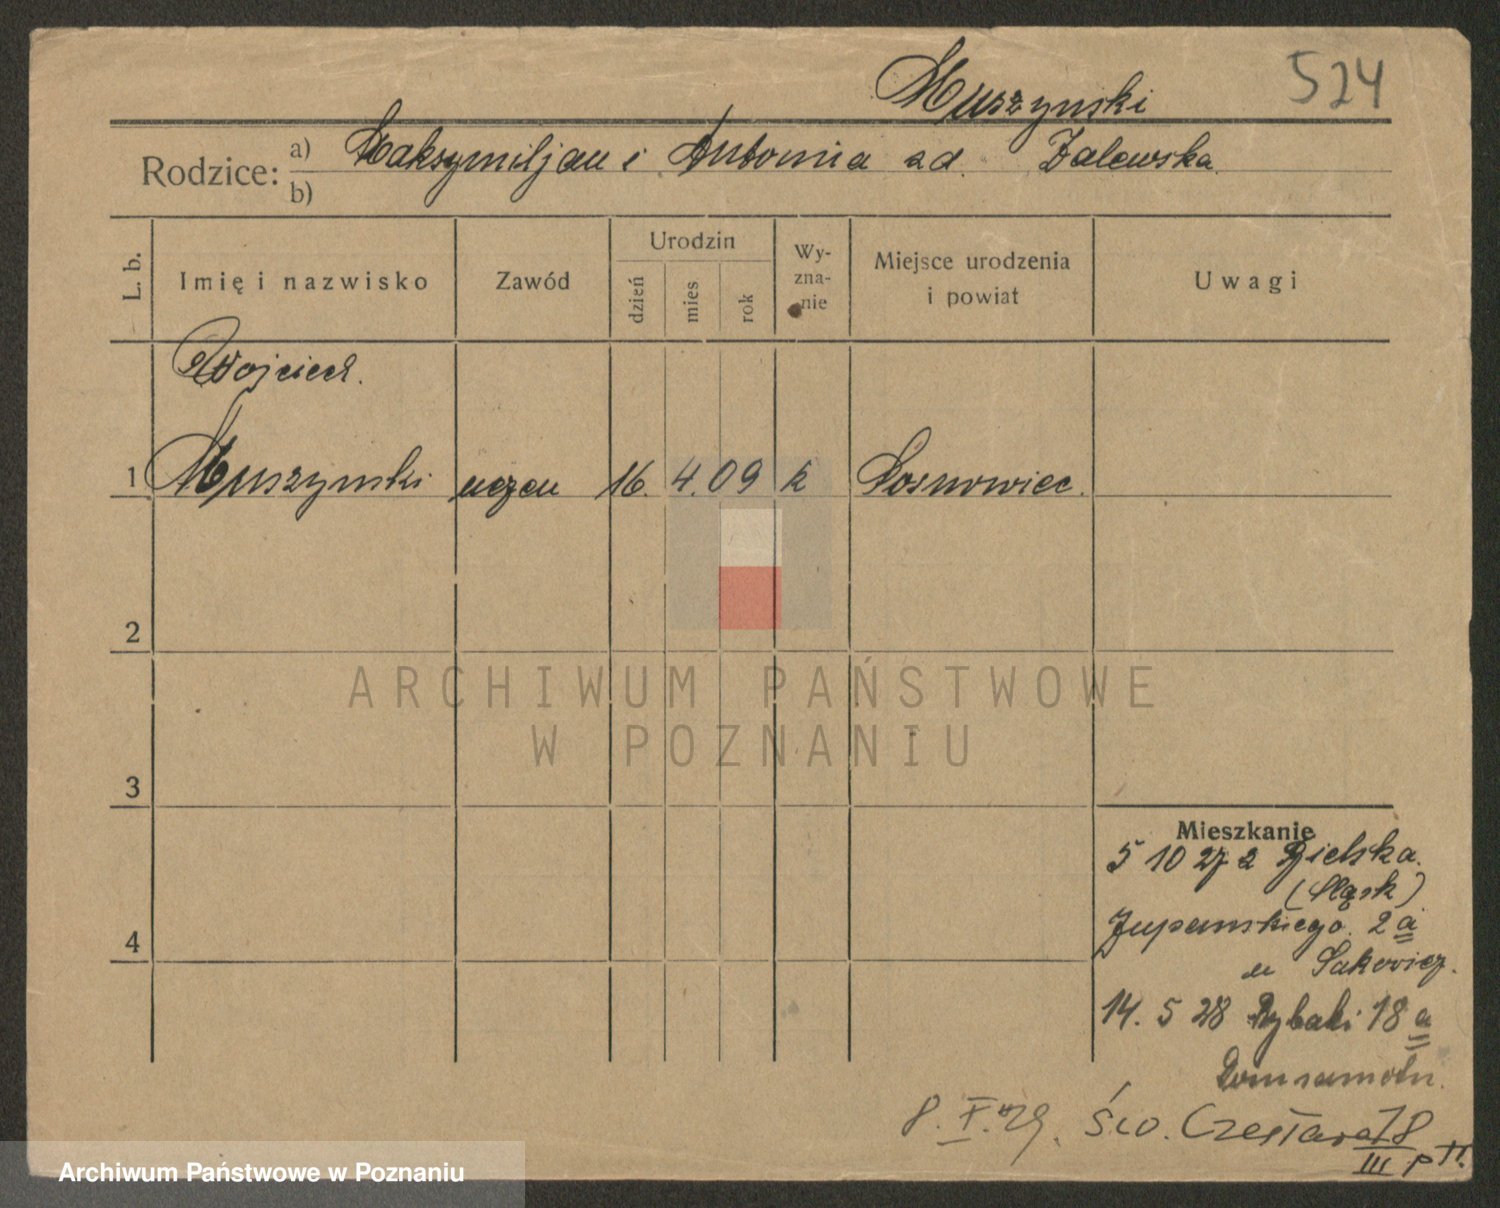 Muszynski 524
Rodzice: a) Maksymiljan i Antonia zd. Zalewska
b)
L. b. Imię i nazwisko Zawód Urodzin dzień mies rok Wyznanie Miejsce urodzenia i powiat Uwagi
Wojciech.
1 Muszynski uczeń 16. 4. 09 k Sosnowiec.
2
ARCHIWUM PAŃSTWOWE
W POZNANIU
3
Mieszkanie
5 10 27 z Bielska.
(Śląsk)
4 Żupanskiego. 2 a
Sakowicz.
14. 5 28 Rybaki 18 a
8. X. 29. Św. Czesława 18
III p
Archiwum Państwowe w Poznaniu